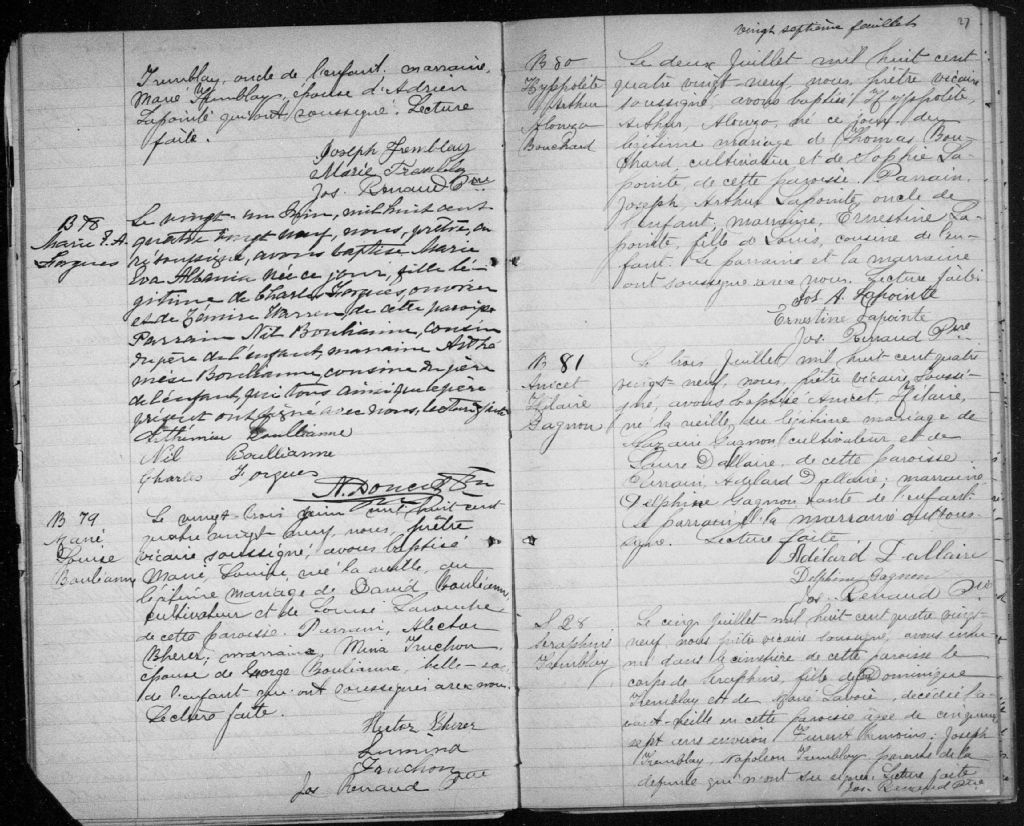 Tremblay, oncle de l'enfant. marraine,
Marie Tremblay, épouse d'Adrien
Lapointe qui ont soussigné. Lecture
faite.
Joseph Tremblay
Marie Trembly
Jos. Renaud Ptre
B 78
Marie E. A.
Forgues
Le vingt-un Juin, mil huit cent
quatre vingt neuf, nous, prêtre, cu
ré soussigné, avons baptisé Marie
Eva Albania née ce jour, fille lé-
gitime de Charles Forgues, ouvrier
et de Zémire Warren, de cette paroisse
Parrain Nil Boulianne, cousin
du père de l'enfant, marraine Arthé
mise Boulianne, cousine du père
de l'enfant, qui tous ainsi que le père
présent ont signé avec nous, lecture faite
Arthémise Boullianne
Nil Boullianne
Charles Forgues
N. Doucet Ptre
B 79
Marie
Louise
Boulianne
Le vingt-trois Juin mil huit cent
quatre vingt neuf, nous, prêtre
vicaire soussigné, avons baptisé
Marie, Louise, née la veille, du
légitime mariage de David Boulianne
cultivateur et de Louise Larouche
de cette paroisse. Parrain, Hector
Bherer; marraine, Mina Truchon
épouse de George Boulianne, belle-
de l'enfant qui ont soussignés avec nous.
Lecture faite.
Hector Bherer
Lumina
Truchon
Jos Renaud Ptre
vingt septième feuillet
27
B 80
Hyppolite
Arthur
Alonzo
Bouchard
Le deux Juillet mil huit cent
quatre vingt-neuf, nous, prêtre vicaire
soussigné, avons baptisé Hyppolite,
Arthur, Alonzo, né ce jour du
légitime mariage de Thomas Bou-
chard cultivateur et de Sophie La-
pointe, de cette paroisse. Parrain.
Joseph, Arthur Lapointe, oncle de
l'enfant, marraine, Ernestine La-
pointe, fille de Louis, cousine de l'en-
fant. Le parrain et la marraine
ont soussigné avec nous. Lecture faite.
Jos A. Lapointe
Ernestine Lapointe
Jos. Renaud Ptre
B 81
Anicet
Hilaire
Gagnon
Le trois Juillet mil huit cent quatre
vingt-neuf, nous, prêtre vicaire, soussi-
gné, avons baptisé Anicet, Hilaire,
né la veille, du légitime mariage de
Nazaire Gagnon cultivateur et de
Laure Dallaire, de cette paroisse
Parrain, Adélard Dallaire; marraine
Delphine Gagnon tante de l'enfant.
Le parrain et la marraine ont sous-
signé. Lecture faite
Adélard Dallaire
Delphine Gagnon
Jos. Renaud Ptre
S 28
Seraphine
Tremblay
Le cinq Juillet mil huit cent quatre vingt
neuf nous prêtre vicaire soussigné, avons inhu-
mé dans le cimetière de cette paroisse le
corps de Seraphine, fille de Dominique
Tremblay et de Marie Lavoie, décédée l'a-
vant-veille en cette paroisse âgée de cinquante
sept ans environ. Furent témoins: Joseph
Tremblay, Napoléon Tremblay, parents de la
défunte qui n'ont su signer. Lecture faite
Jos. Renaud Ptre